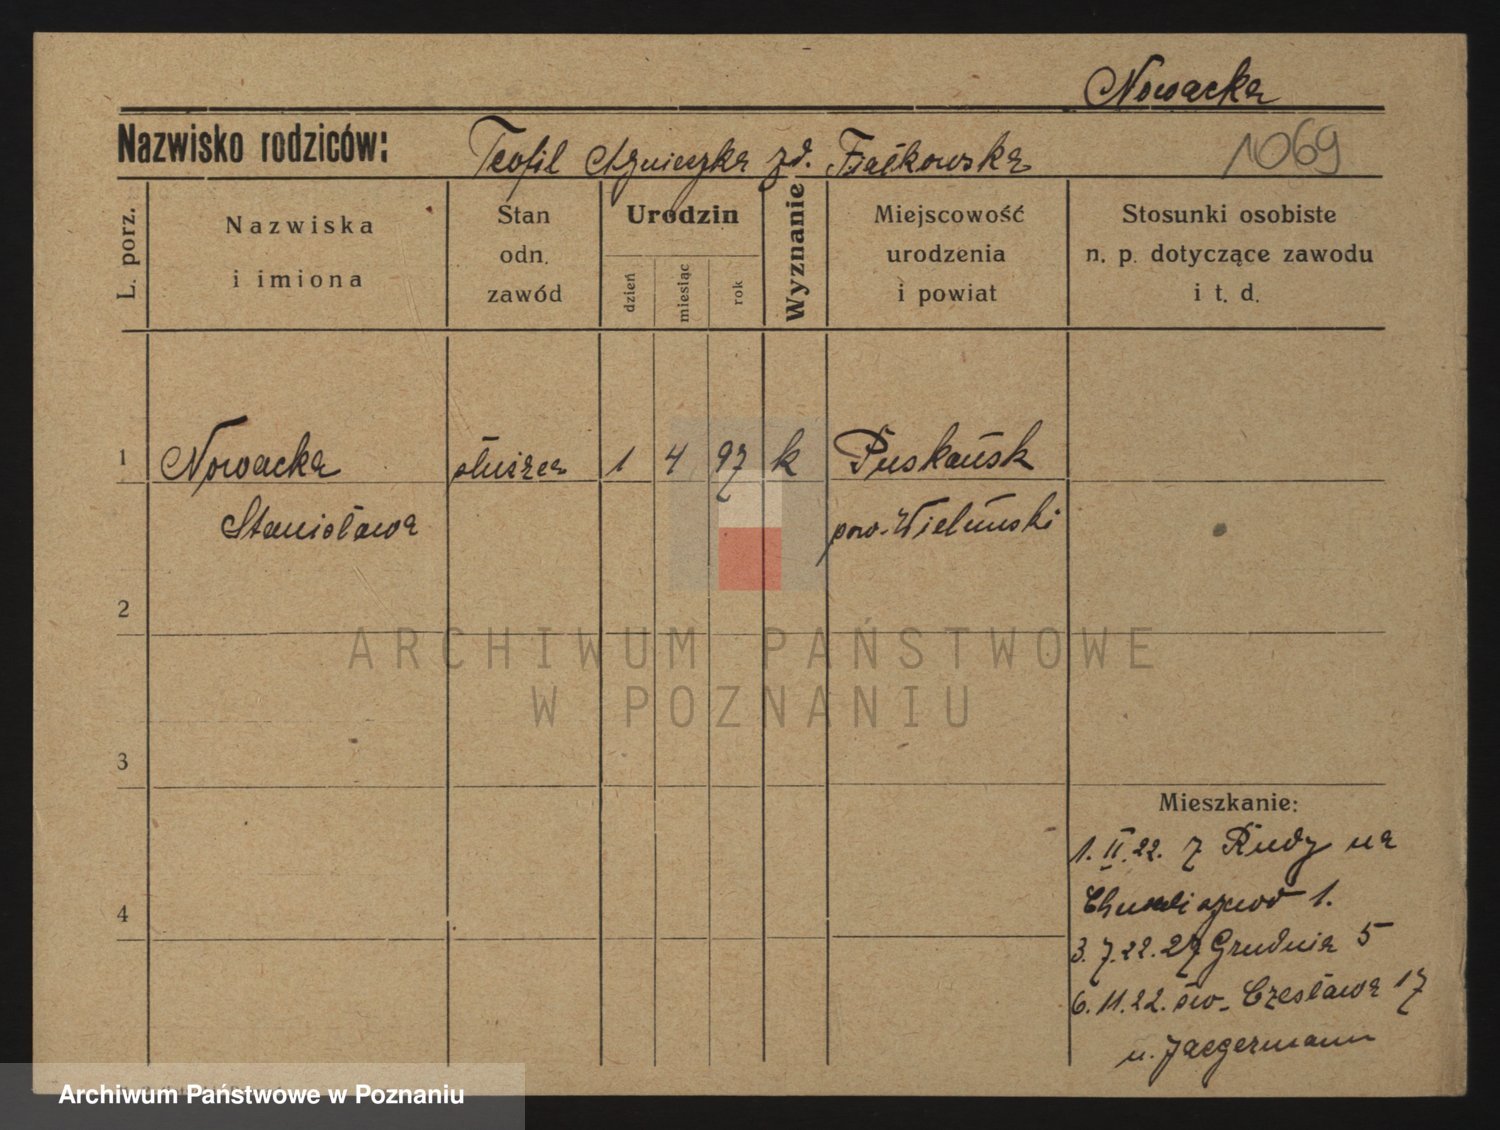 Nowacka
Nazwisko rodziców: Teofil Agnieszka zd. Fiałkowska
1069
L. porz.
Nazwiska
i imiona
Stan
odn.
zawód
Urodzin
dzień
miesiąc
rok
Wyznanie
Miejscowość
urodzenia
i powiat
Stosunki osobiste
n. p. dotyczące zawodu
i t. d.
1 Nowacka służąca 1 4 97 k
Stanisława pow. Wieluński
2
3
4
Mieszkanie:
1. II. 22. z Rudy na
1.
3. 7. 22. 27 Grudnia 5
6. 11. 22. św. Czesława 17
u. Jaegermann
ARCHIWUM PAŃSTWOWE
W POZNANIU
Archiwum Państwowe w Poznaniu